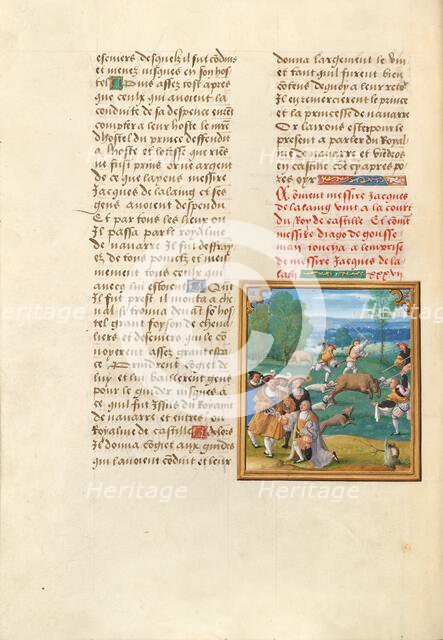 escuiers desquelz il fut co᷒duis
et menez jusques en son hos
tel Puis assez tost apres
que ceulx qui avoient la
conduite de sa despence eurent
compter a leur hoste le mre
dhostel du prince deffendit
a lhoste et hostesse que riens
ne fust prins or ne argent
de ce que layens messire
Jacques de lalaing et ses
gens avoient despendu
Et par tous les lieux ou
Il passa par le royalme
de navarre Il fut deffray
ez de tous pointz et mesm
nement tous ceulx qui
avecq lui estoient Quant
Il fut prest il monta a che
val se trouva devant so hos
tel grant foyson de cheval
liers et descuiers qui le con
voyerent assez grant espa
ce Prindrent congiet de
luy et luy baillerent gens
pour le guider jusques a
ce quil fut Issus du Royaume
de navarre et entrez ou
Royalme de castille Adonc
Il donna congiet aux guides
qui lavoient conduit et leur
donna largement le vin
et tant quil furent bien
contens de quoy a leur retour
Ilz en remercierent le prince
et la princesse de navarre
Or lairons ester pour le
present a parler du Royal
me de navarre et Vendrons
en castille co᷒me cy apres po
rez oyr
Coment messire Jacques
de lalaing vint a la court
du Roy de castille Et come᷒t
messire diago de gousse
man toucha a lemprise
de messire Jacques de la
laing xxxvij
Heritage
Heritage
Heritage
Heritage
Heritage
Heritage